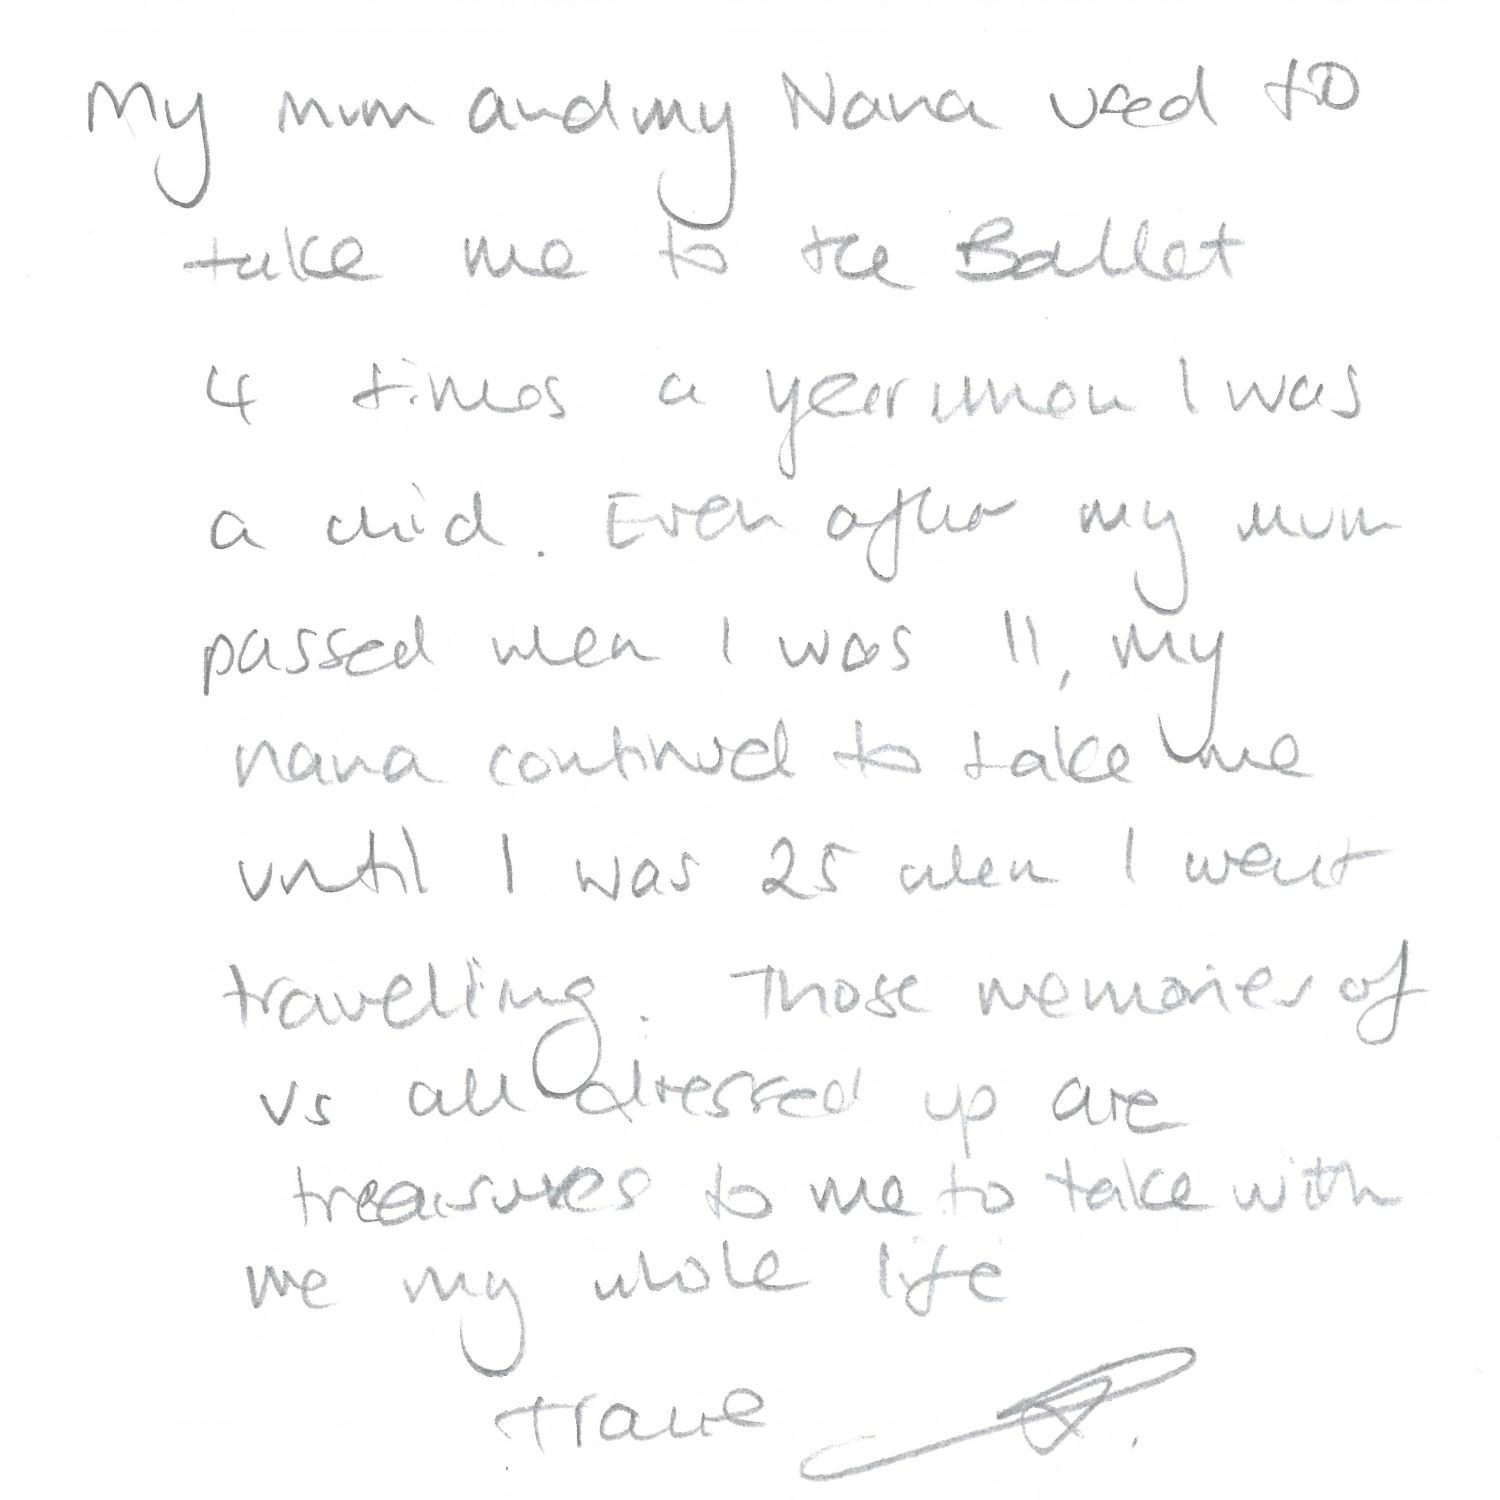 My mum and my Nana used to
take me to the Ballet
4 times a year when I was
a child. Even after my mum
passed when I was 11, my
nana continued to take me
until I was 25 when I went
traveling. Those memories of
us all dressed up are
treasures to me to take with
me my whole life